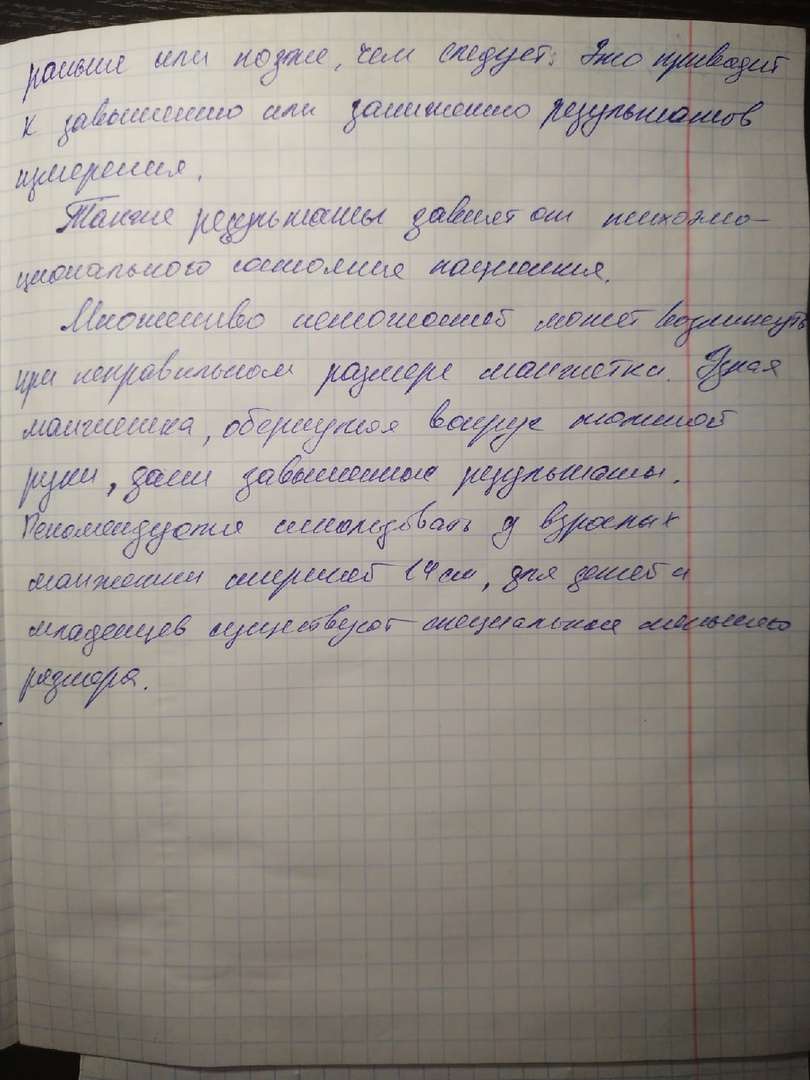 раньше или позже, чем следует. Это приводит
к завышению или занижению результатов
измерения.
Также результаты зависят от психоэмо-
ционального состояния пациента.
Множество неточностей может возникнуть
при неправильном размере манжетки. Узкая
манжетка, обернутая вокруг толстой
руки, даст завышенные результаты.
Рекомендуется использовать у взрослых
манжетки шириной 14 см, для детей и
младенцев существуют специальные меньшего
размера.